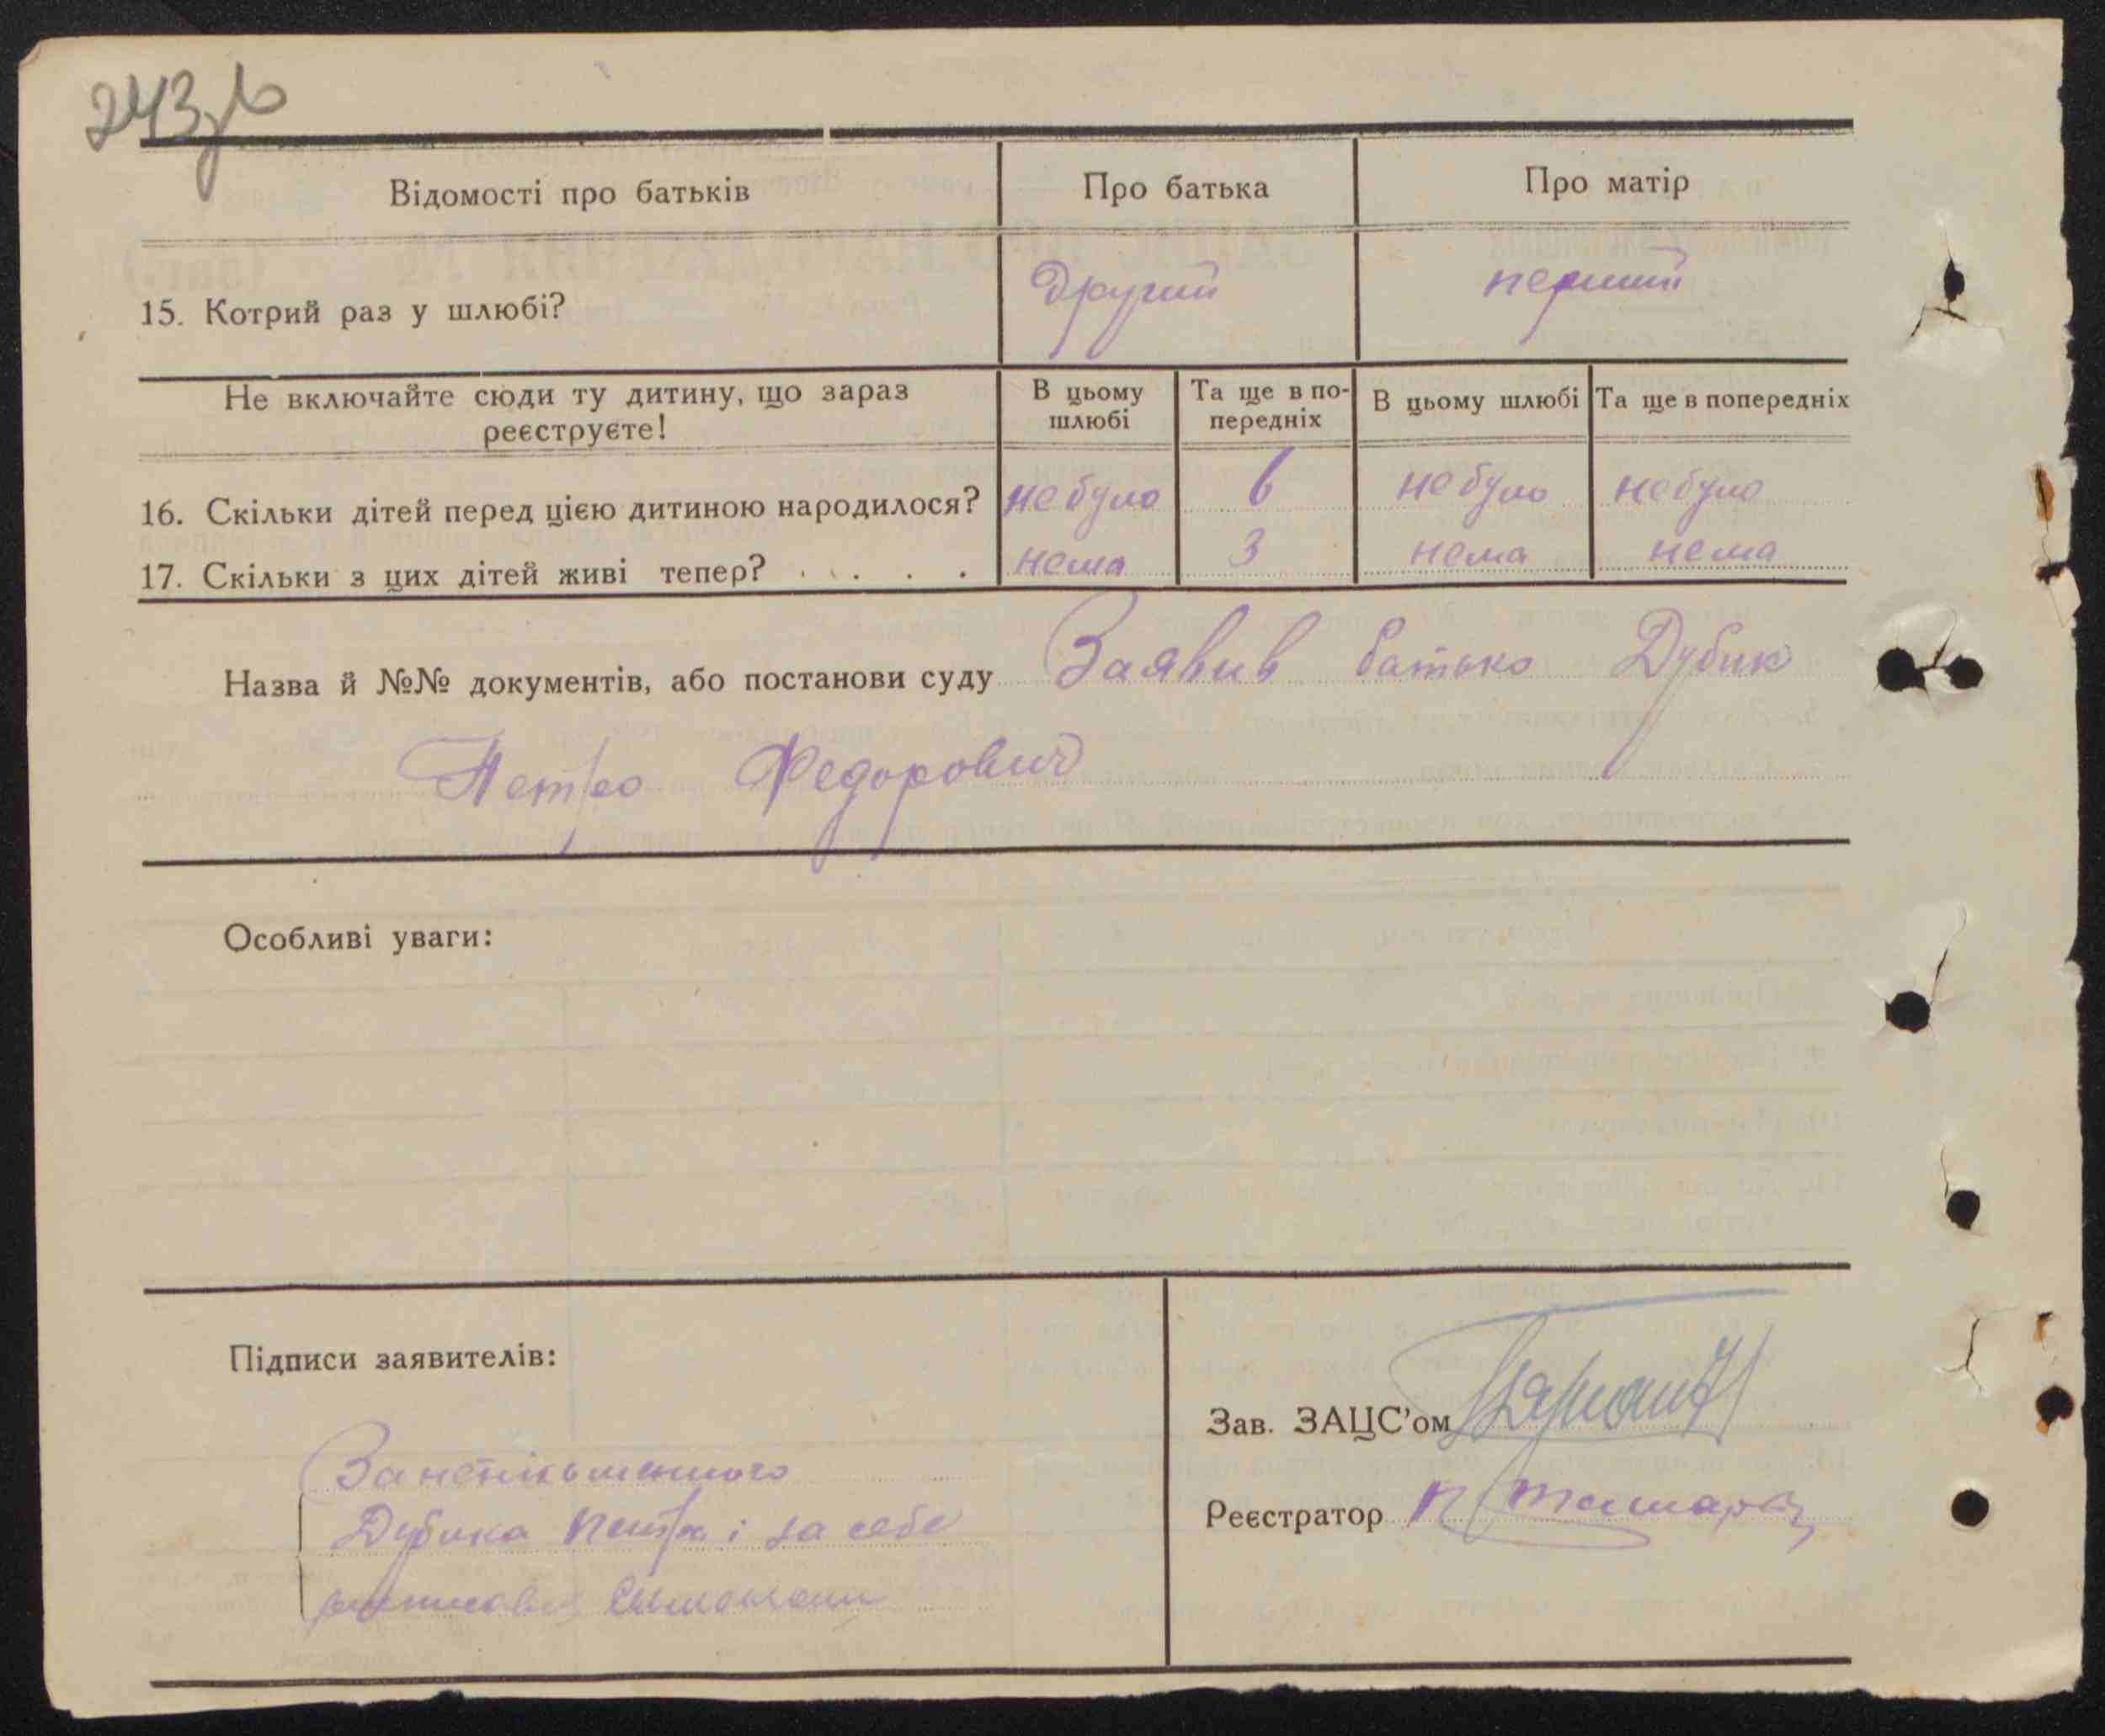 243
Відомості про батьків
Про батька
Про матір
15. Котрий раз у шлюбі?
другий
перший
Не включайте сюди ту дитину, що зараз
реєструєте!
В цьому
шлюбі
Та ще в по-
передніх
В цьому шлюбі
Та ще в попередніх
16. Скільки дітей перед цією дитиною народилося?
небуло
6
небуло
небуло
17. Скільки з цих дітей живі тепер? . . . . .
нема
3
нема
нема
Назва й №№ документів, або постанови суду Заявив батько Дубик
Петро Федорович
Особливі уваги:
Підписи заявителів:
Дубика Петра і за себе
Зав. ЗАЦС'ом
Реєстратор